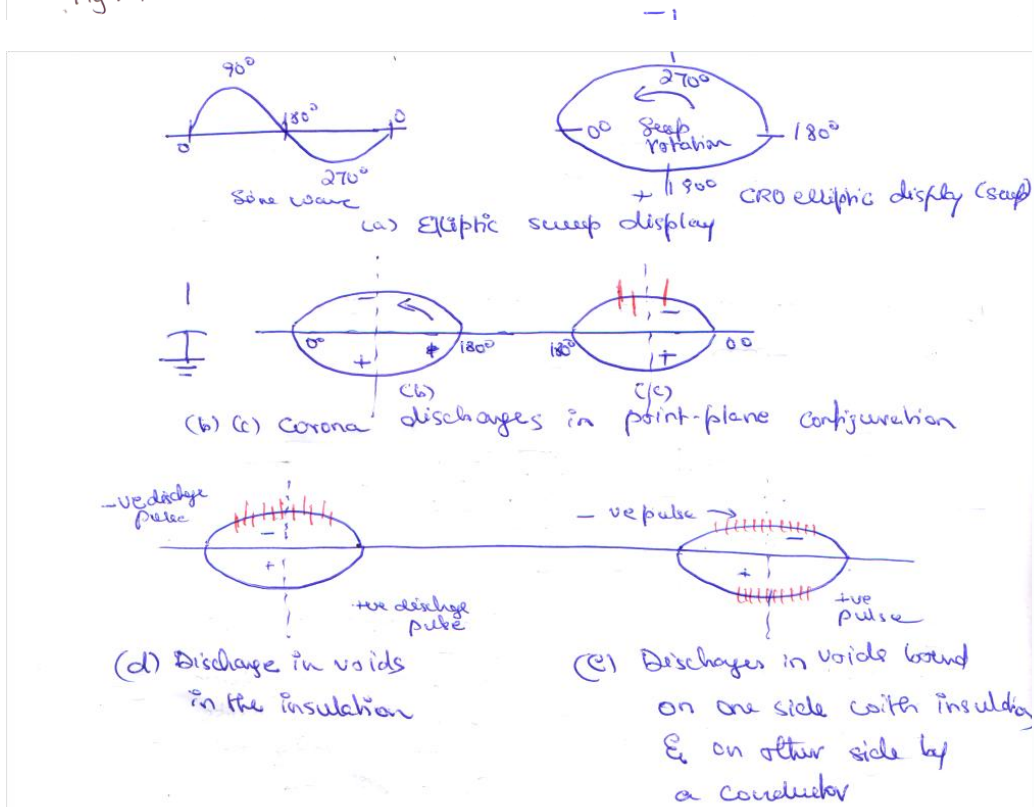 Fig.
- 1
90°
180°
0
0
270°
Sine wave
270°
0°
Seep
rotation
180°
+ 90°
CRO elliptic display (seep)
(a) Elliptic sweep display
-
0°
+
180°
-
180°
+
00
(b)
(c)
(b) (c) Corona discharges in point-plane configuration
-ve dischge
pulse
-
+
+ve dischge
pulse
- ve pulse →
-
+
+ve
pulse
(d) Discharge in voids
in the insulation
(e) Discharges in voids bound
on one side with insulation
& on other side by
a conductor